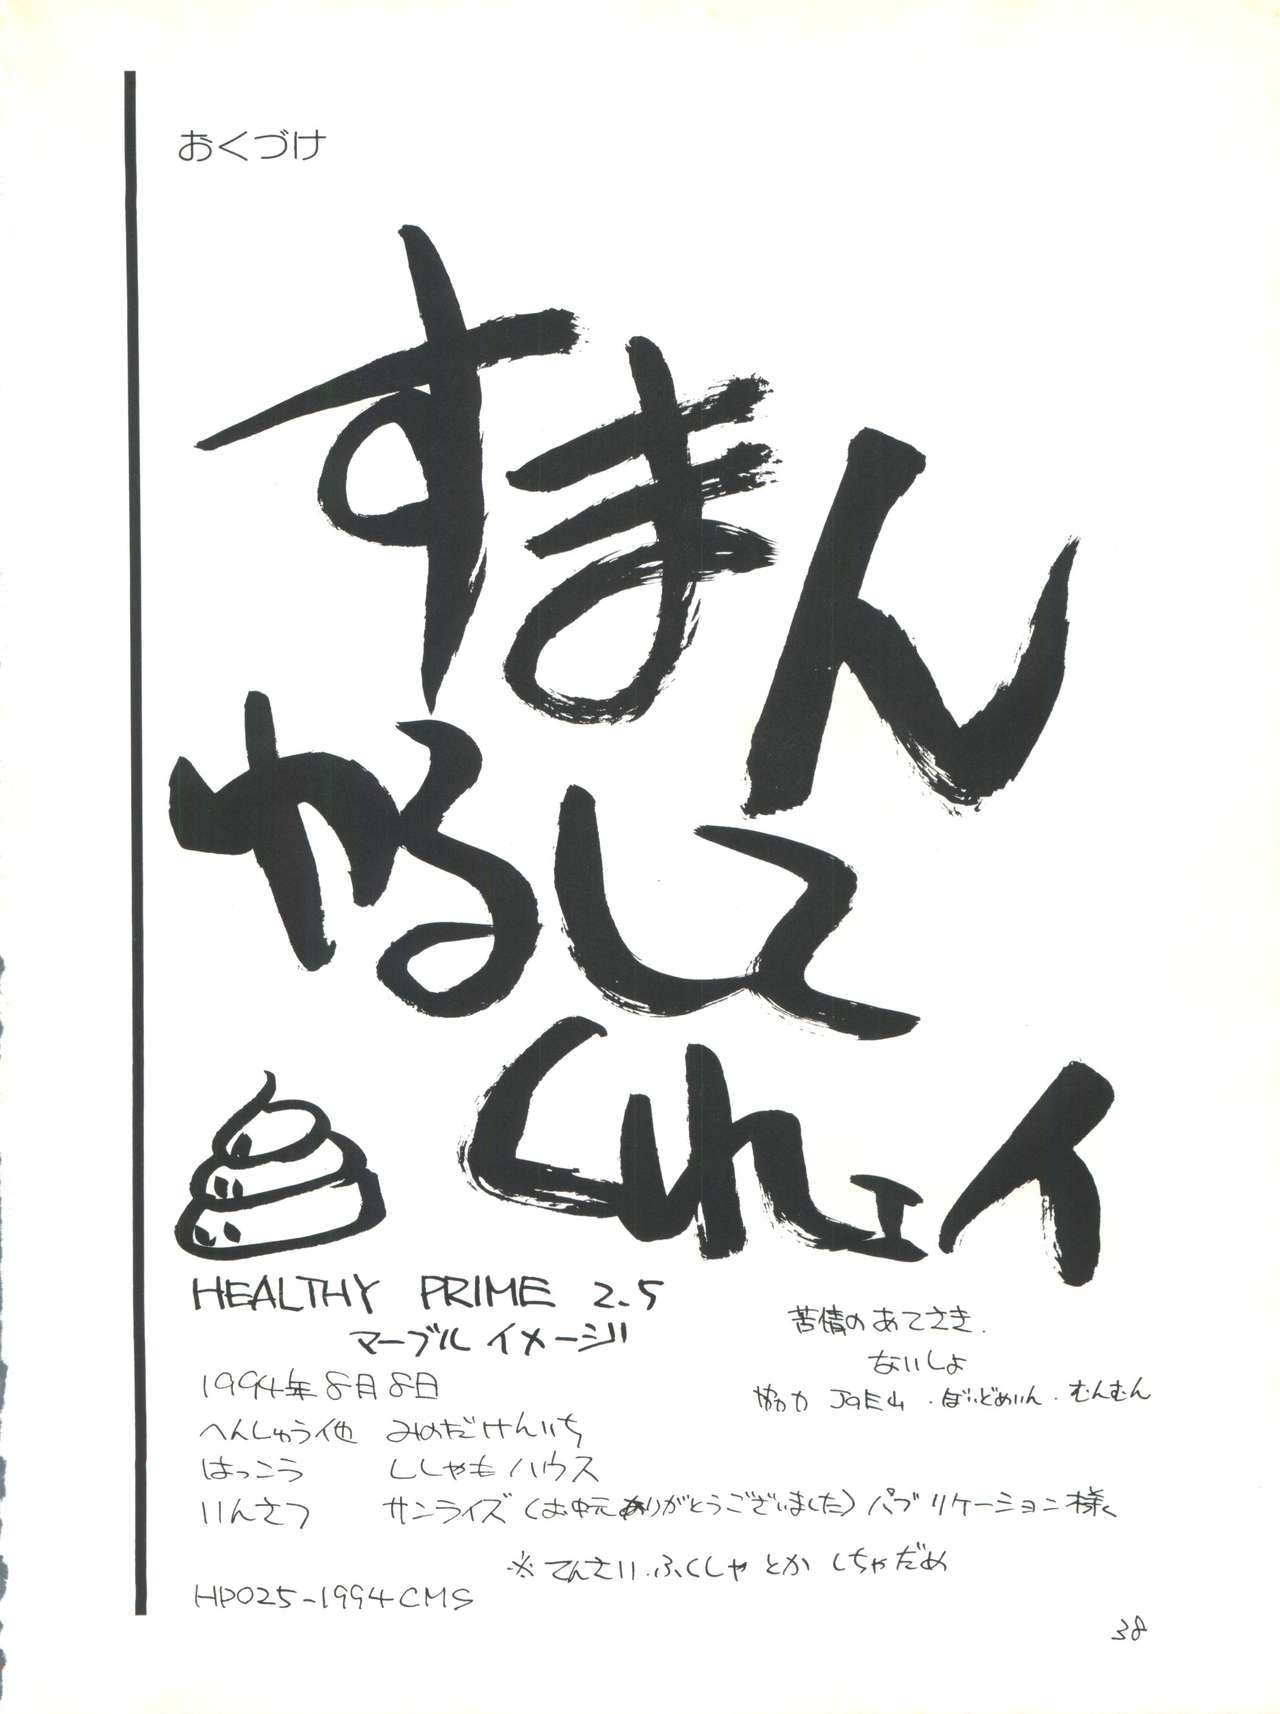 おくづけ
すまん
ゆるして
くれェイ
HEALTHY PRIME 2.5
マーブルイメージ
1994年8月8日
へんしゅう他 みのだけんいち
はっこう ししゃもハウス
いんさつ サンライズ(お中元ありがとうございました)パブリケーション様
苦情のあてさき.
ないしょ
協力 ・ぼいどめいん・むんむん
※てんさい・ふくしゃとかしちゃだめ
HP025-1994CMS
38